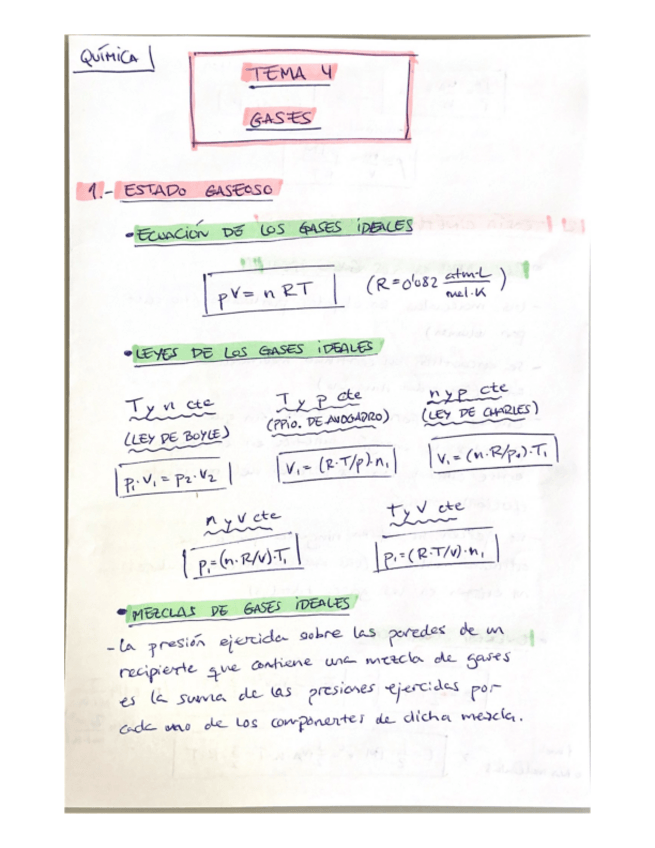 QUÍMICA 1
TEMA 4
GASES
1.- ESTADO GASEOSO
• ECUACIÓN DE LOS GASES IDEALES
pV = nRT (R=0'082 atm·L / mol·K)
• LEYES DE LOS GASES IDEALES
T y n cte
(LEY DE BOYLE)
p₁·V₁ = p₂·V₂
T y p cte
(PPIO. DE AVOGADRO)
V₁ = (R·T/p)·n₁
n y p cte
(LEY DE CHARLES)
V₁ = (n·R/p₁)·T₁
n y V cte
p₁=(n·R/V)·T₁
T y V cte
p₁=(R·T/V)·n₁
• MEZCLAS DE GASES IDEALES
- La presión ejercida sobre las paredes de un
recipiente que contiene una mezcla de gases
es la suma de las presiones ejercidas por
cada uno de los componentes de dicha mezcla.